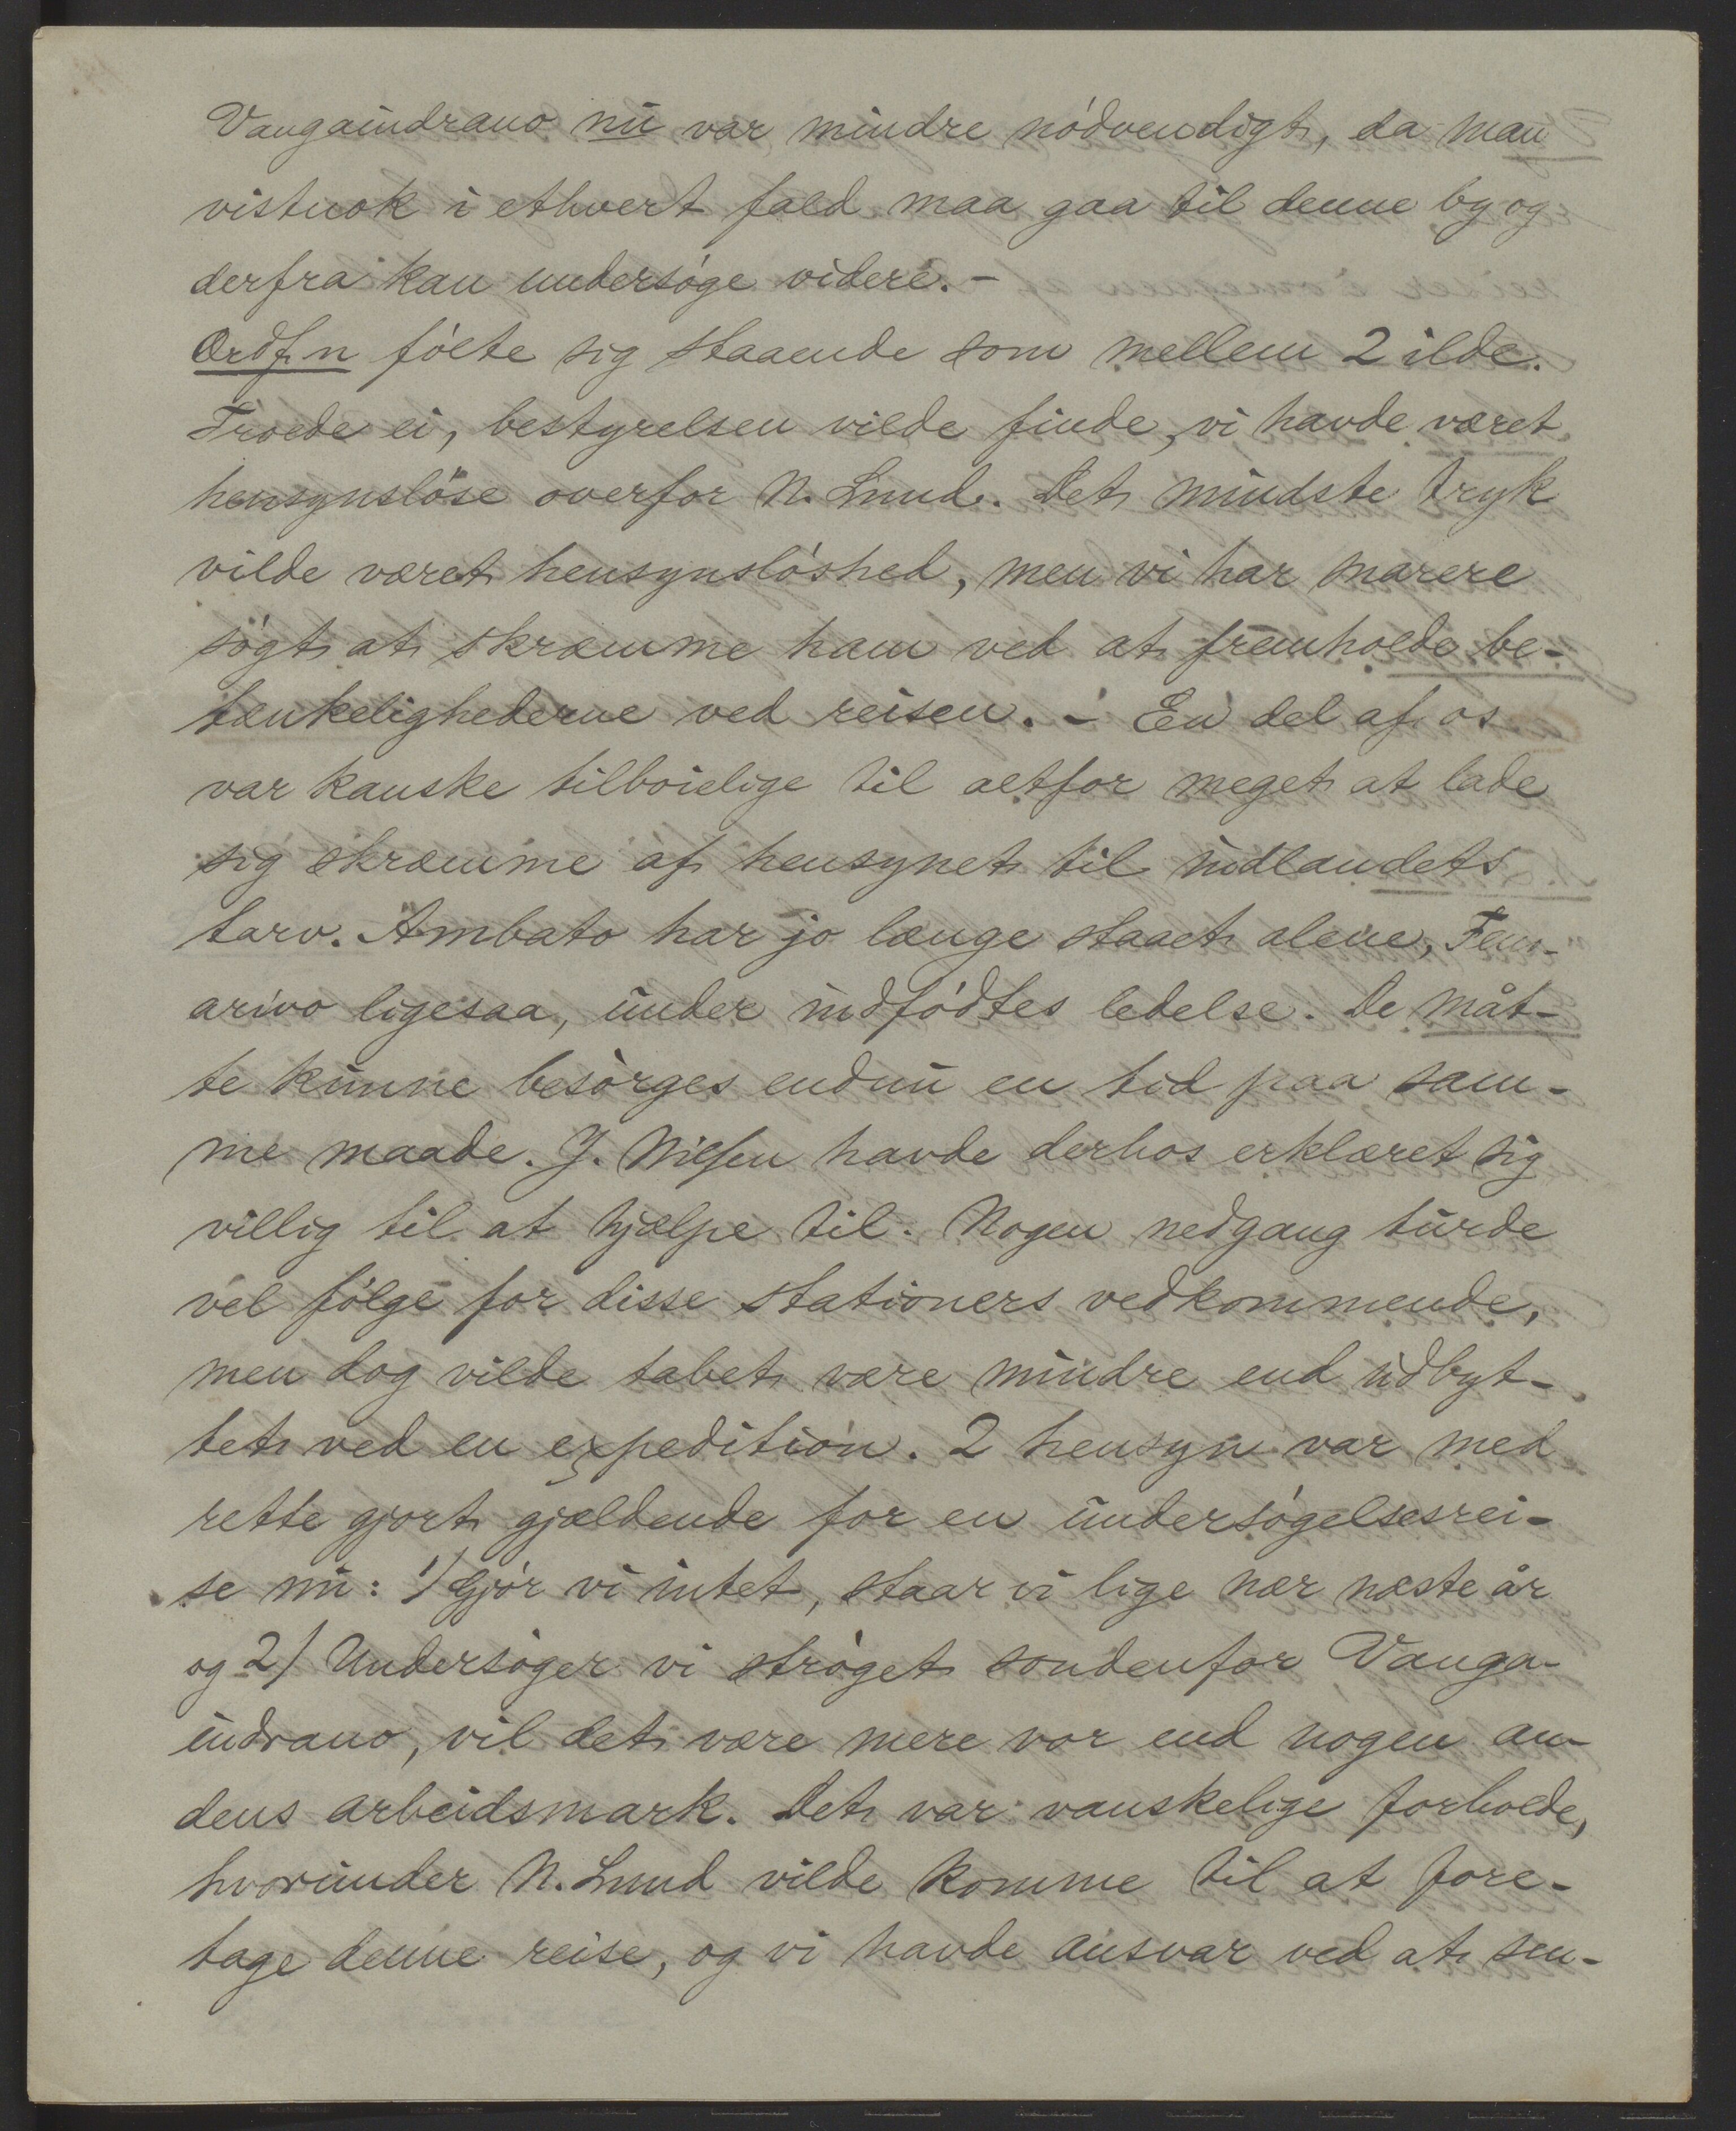 Vangaindrano nu var mindre nødvendigt, da man
vistnok i ethvert fald maa gaa til denne by og
derfra kan undersøge videre. –
Ordf.n følte sig staaende som mellem 2 ilde.
Troede ei, bestyrelsen vilde finde, vi havde været
hensynsløse overfor N. Lund. Det mindste tryk
vilde været hensynsløshed, men vi har snarere
søgt at skræmme ham ved at fremholde be-
tænkelighederne ved reisen. – En del af os
var kanske tilbøielige til altfor meget at lade
sig skræmme af hensynet til indlandets
tarv. Ambato har jo længe staaet alene, Fen-
arivo ligesaa, under indfødtes ledelse. De måt-
te kunne besørges endnu en tid paa sam-
me maade. J. Nilsen havde derhos erklæret sig
villig til at hjælpe til. Nogen nedgang turde
vel følge for disse stationers vedkommende,
men dog vilde tabet være mindre end udbyt-
tet ved en expedition. 2 hensyn var med
rette gjort gjældende for en undersøgelsesrei-
se nu: 1) Gjør vi intet, staar vi lige nær næste år
og 2) Undersøger vi strøget søndenfor Vanga-
indrano, vil det være mere vor end nogen an-
dens arbeidsmark. Det var vanskelige forholde,
hvorunder N. Lund vilde komme til at fore-
tage denne reise, og vi havde ansvar ved at sen-